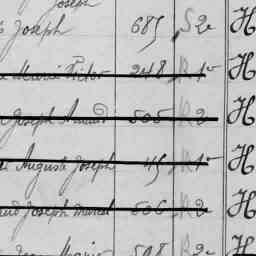 Joseph
Joseph 685 S 2e H
Marie Victor 248 R 1e H
Joseph Arnaud 505 R 2e H
Auguste Joseph 45 R 1e H
Joseph Marcel 506 R 2e H
Marie 508 R 2e